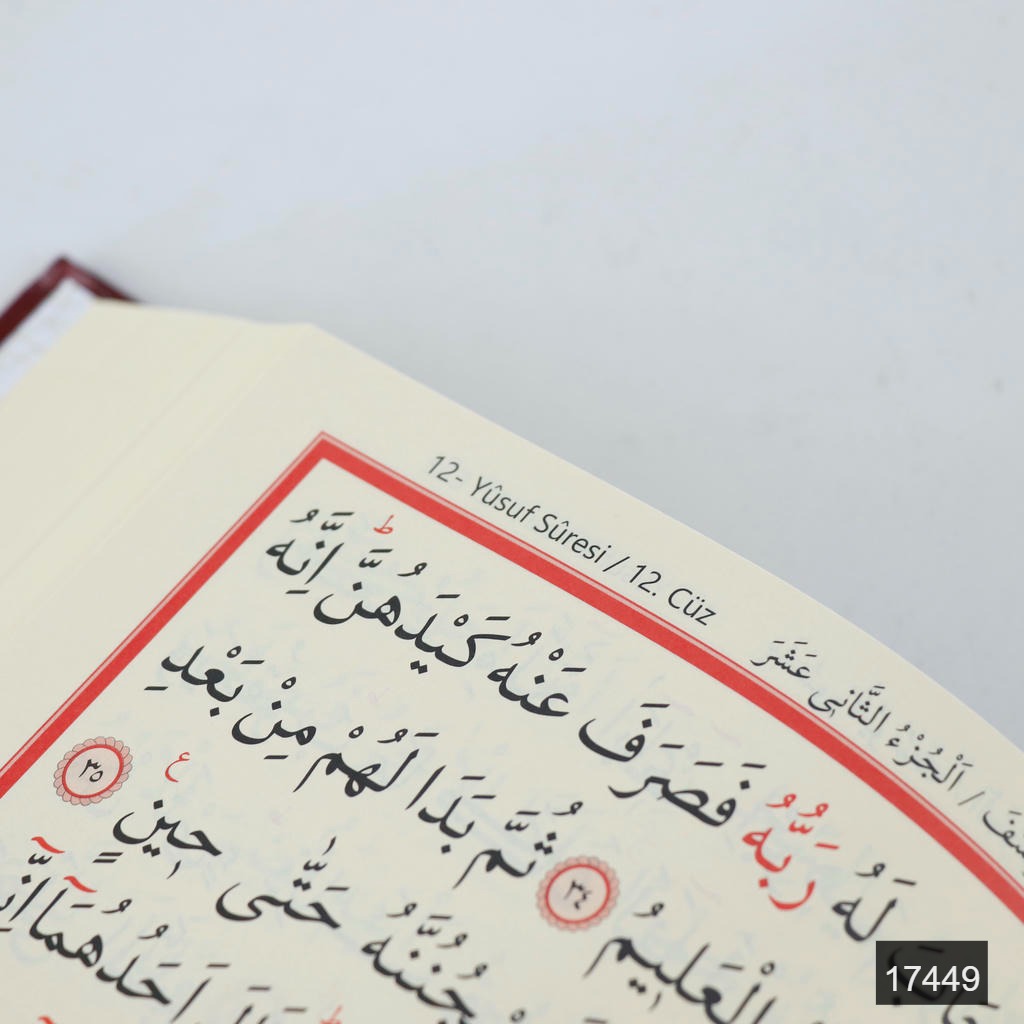 12- Yûsuf Sûresi / 12. Cüz
اَلْجُزْءُ الثَّانٖى عَشَرَ /
لَهُ رَبُّهُ فَصَرَفَ عَنْهُ كَيْدَهُنَّ ط اِنَّهُ
الْعَلٖيمُ ٣٤ ثُمَّ بَدَا لَهُمْ مِنْ بَعْدِ
حَتّٰى حٖينٍ ع ٣٥
اَحَدُهُمَٓا
17449